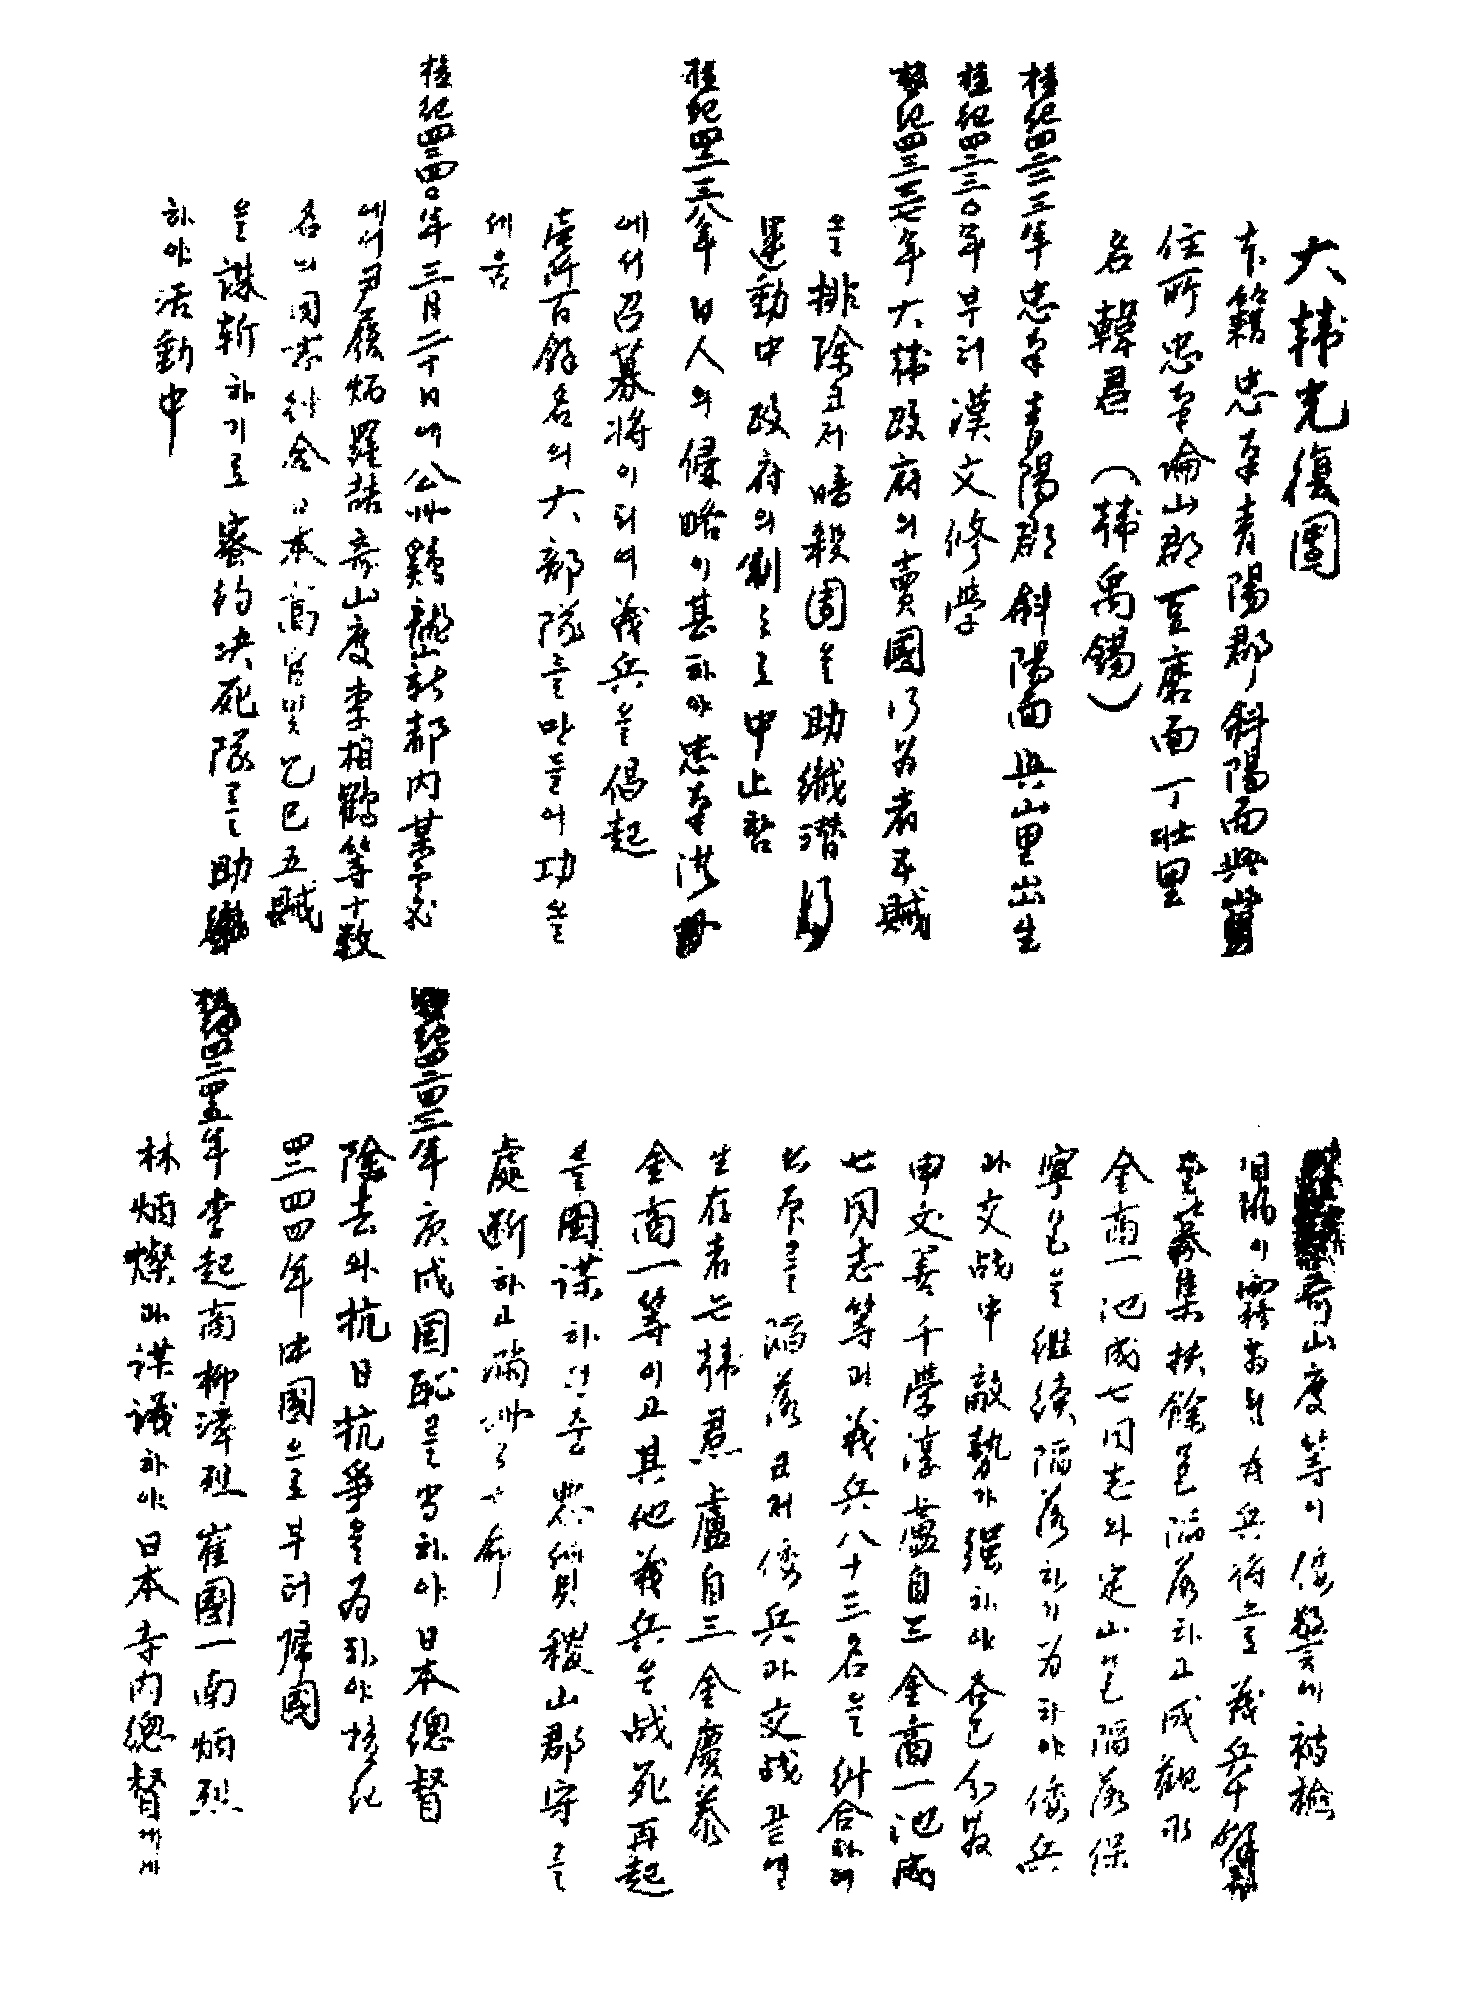 大韓光復團
本籍 忠南 青陽郡 斜陽面 興
住所 忠南 論山郡 豆磨面 丁壯里
名 韓焄 (韓禹錫)
檀紀四二二三年 忠南 青陽郡 斜陽面 興山里 出生
檀紀四二三〇年부터 漢文修學
檀紀四二三七年 大韓政府의 賣國行为者 五賊
을 排除코저 暗殺團을 助織 潛行
運動中 政府의 制으로 中止함
檀紀四二三八年 日人의 侵略이 甚하야 忠南 洪州
에서 召募將이되여 義兵을 倡起
壹阡百餘名의 大部隊를 만들어 功을
세움
檀紀四二四〇年 三月二十日에 公州 鷄龍 新都內 某
에서 尹履炳 羅喆 奇山度 李相鶴等 十数
名의 同志 日本高官 및 乙巳五賊
을 謀斬하기로 密約 决死隊를 助織
하야 活動中
奇山度等이 倭警에 被檢
으로 義兵
募集 扶餘邑 陷落하고 成觀永
金商一 池成七 同志와 定山邑 陷落 保
寧邑을 継続 陷落하기 为하야 倭兵
과 交战中 敵勢가 强하야 各已 分散
申文善 千学淳 盧自三 金商一 池成
七 同志等과 義兵 八十三名을 糾合하여
를 陷落코저 倭兵과 交战 끝에
生存者는 韓焄 盧自三 金慶泰
金商一等이고 其他 義兵은 战死 再起
를 圖謀하던중 稷山郡守를
處斷하고 滿洲로 亡命
檀紀四二四三年 庚戌国恥를 当하야 日本總督
除去와 抗日抗爭을 为하야 檀紀
四二四四年 中國으로부터 帰國
檀紀四二四五年 李起商 柳漳烈 崔國一 南炳烈
林炳燦과 謀議하야 日本 寺内總督에게